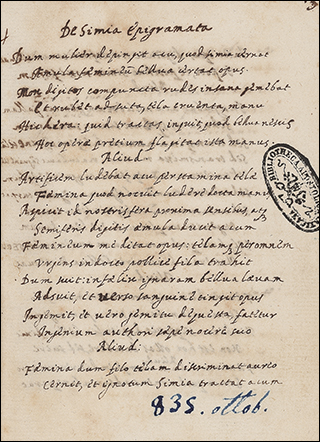 De Simia epigramata
Dum mulier depingit acu, quod simia cernat
Aemula faemineum bellua certat opus.
Mox digitos compuncta rudes insane gemebat
Et rubet adiuta tela cruenta manu
Hic hera: quid tractas inquit, quod bellua nescis
Hoc operae praetium flagitat ista manus.
Aliud.
Artificem ludebat acu per stamina telae
Faemina quod nocuit ludere docta manus
Aspicit id nostris fera proxima sensibus,
Semiferis digitis aemula ducit acum
Faemineum meditatur opus, telamq; perosnem
Urgens indocto pollice fila trahit
Dum suit: infaelix ignaram bellua laevam
Adsuit, et vero sanguine tingit opus
Ingemit, et vero gemitu depuesta, fatetur
Ingenium authori saepe nocere suo
Aliud.
Faemina dum filo telam discriminat aureo
Cernit, et ignotum Simia tractat acum
835. ottob.
BIBLIOTHECA APOSTOLICA VATICANA